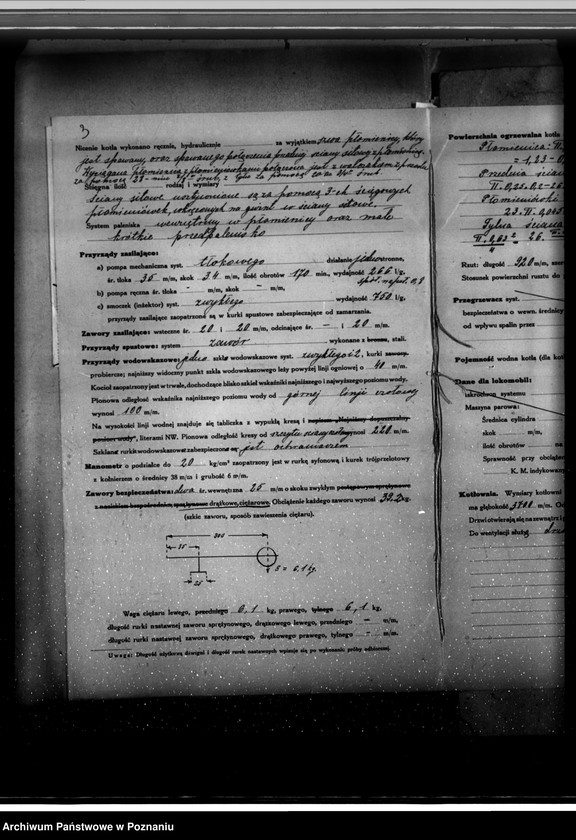 3
Nicenie kotła wykonano ręcznie, hydraulicznie za wyjątkiem szwa płomienicy, który
jest spawany, oraz spawanego połączenia
za pomocą
Ścięgna ilość rodzaj i wymiary
Ściany sitowe wzmocnione są za pomocą 3-ch ściągowych
płomieniówek, wkręconych na gwint w ściany sitowe.
System paleniska wewnętrzny w płomienicy oraz małe
krótkie przedpalenisko
Przyrządy zasilające:
a) pompa mechaniczna syst. tłokowego działania jednostronne,
śr. tłoka 35 m/m, skok 34 m/m, ilość obrotów 170 min., wydajność 266 l/g.
b) pompa ręczna śr. tłoka - m/m, skok - m/m,
c) smoczek (inżektor) syst. zwykłego wydajność 750 l/g.
przyrządy zasilające zaopatrzone są w kurki spustowe zabezpieczające od zamarzania.
Zawory zasilające: wsteczne śr. 20 i 20 m/m, odcinające śr. — i 20 m/m.
Przyrządy spustowe: system zawór wykonane z bronzu, stali.
Przyrządy wodowskazowe: jedno szkło wodowskazowe syst. zwykłego i 2. kurki zawory
probiercze; najniższy widoczny punkt szkła wodowskazowego leży powyżej linji ogniowej o 40 m/m.
Kocioł zaopatrzony jest w trwałe, dochodzące blisko szkieł wskaźniki najniższego i najwyższego poziomu wody.
Pionowa odległość wskaźnika najniższego poziomu wody od górnej linji czołowej
wynosi 100 m/m.
Na wysokości linji wodnej znajduje się tabliczka z wypukłą kreską i napisem „Najniższy dopuszczalny
poziom wody", literami NW. Pionowa odległość kreski od szczytu wynosi 220 m/m.
Szklane rurki wodowskazowe zabezpieczone są jest ochraniaczem
Manometr o podziałce do 20 kg/cm² zaopatrzony jest w rurkę syfonową i kurek trójprzelotowy
z kołnierzem o średnicy 38 m/m i grubości 6 m/m.
Zawory bezpieczeństwa: dwa śr. wewnętrzna 25 m/m o skoku zwykłym
z naciskiem bezpośrednim, sprężynowe drążkowe, ciężarowe. Obciążenie każdego zaworu wynosi 39.2 kg.
(szkic zaworu, sposób zawieszenia ciężaru).
300
25
G = 6.1 kg.
25
Waga ciężaru lewego, przedniego 6,1 kg, prawego, tylnego 6,1 kg,
długość rurki nastawnej zaworu sprężynowego, drążkowego lewego, przedniego — m/m,
długość rurki nastawnej zaworu sprężynowego, drążkowego prawego, tylnego — m/m.
Uwaga: Długość użytkową dźwigni i długość rurek nastawnych wpisuje się po wykonaniu próby odbiorczej.
Powierzchnia ogrzewalna kotła
Płomienica: Π.
= 1,23 - 0
Przednia ścia
Płomieniówki
23. Π. 0,045
Tylna ściana
Ruszt: długość 320 m/m, szero
Stosunek powierzchni rusztu do
Przegrzacz syst.
bezpieczeństwa o wewn. średnicy
od wpływu spalin przez
Pojemność wodna kotła (dla ko
Dane dla lokomobil:
skrócona systemu
Maszyna parowa:
Średnica cylindra
skok m/m,
ilość obrotów na
Sprawność przy obciążen
K. M. indykowany
Kotłownia. Wymiary kotłowni
ma głębokość 3700 m/m. Od
Drzwi otwierają się na zewnątrz i
Do wentylacji służą
Archiwum Państwowe w Poznaniu